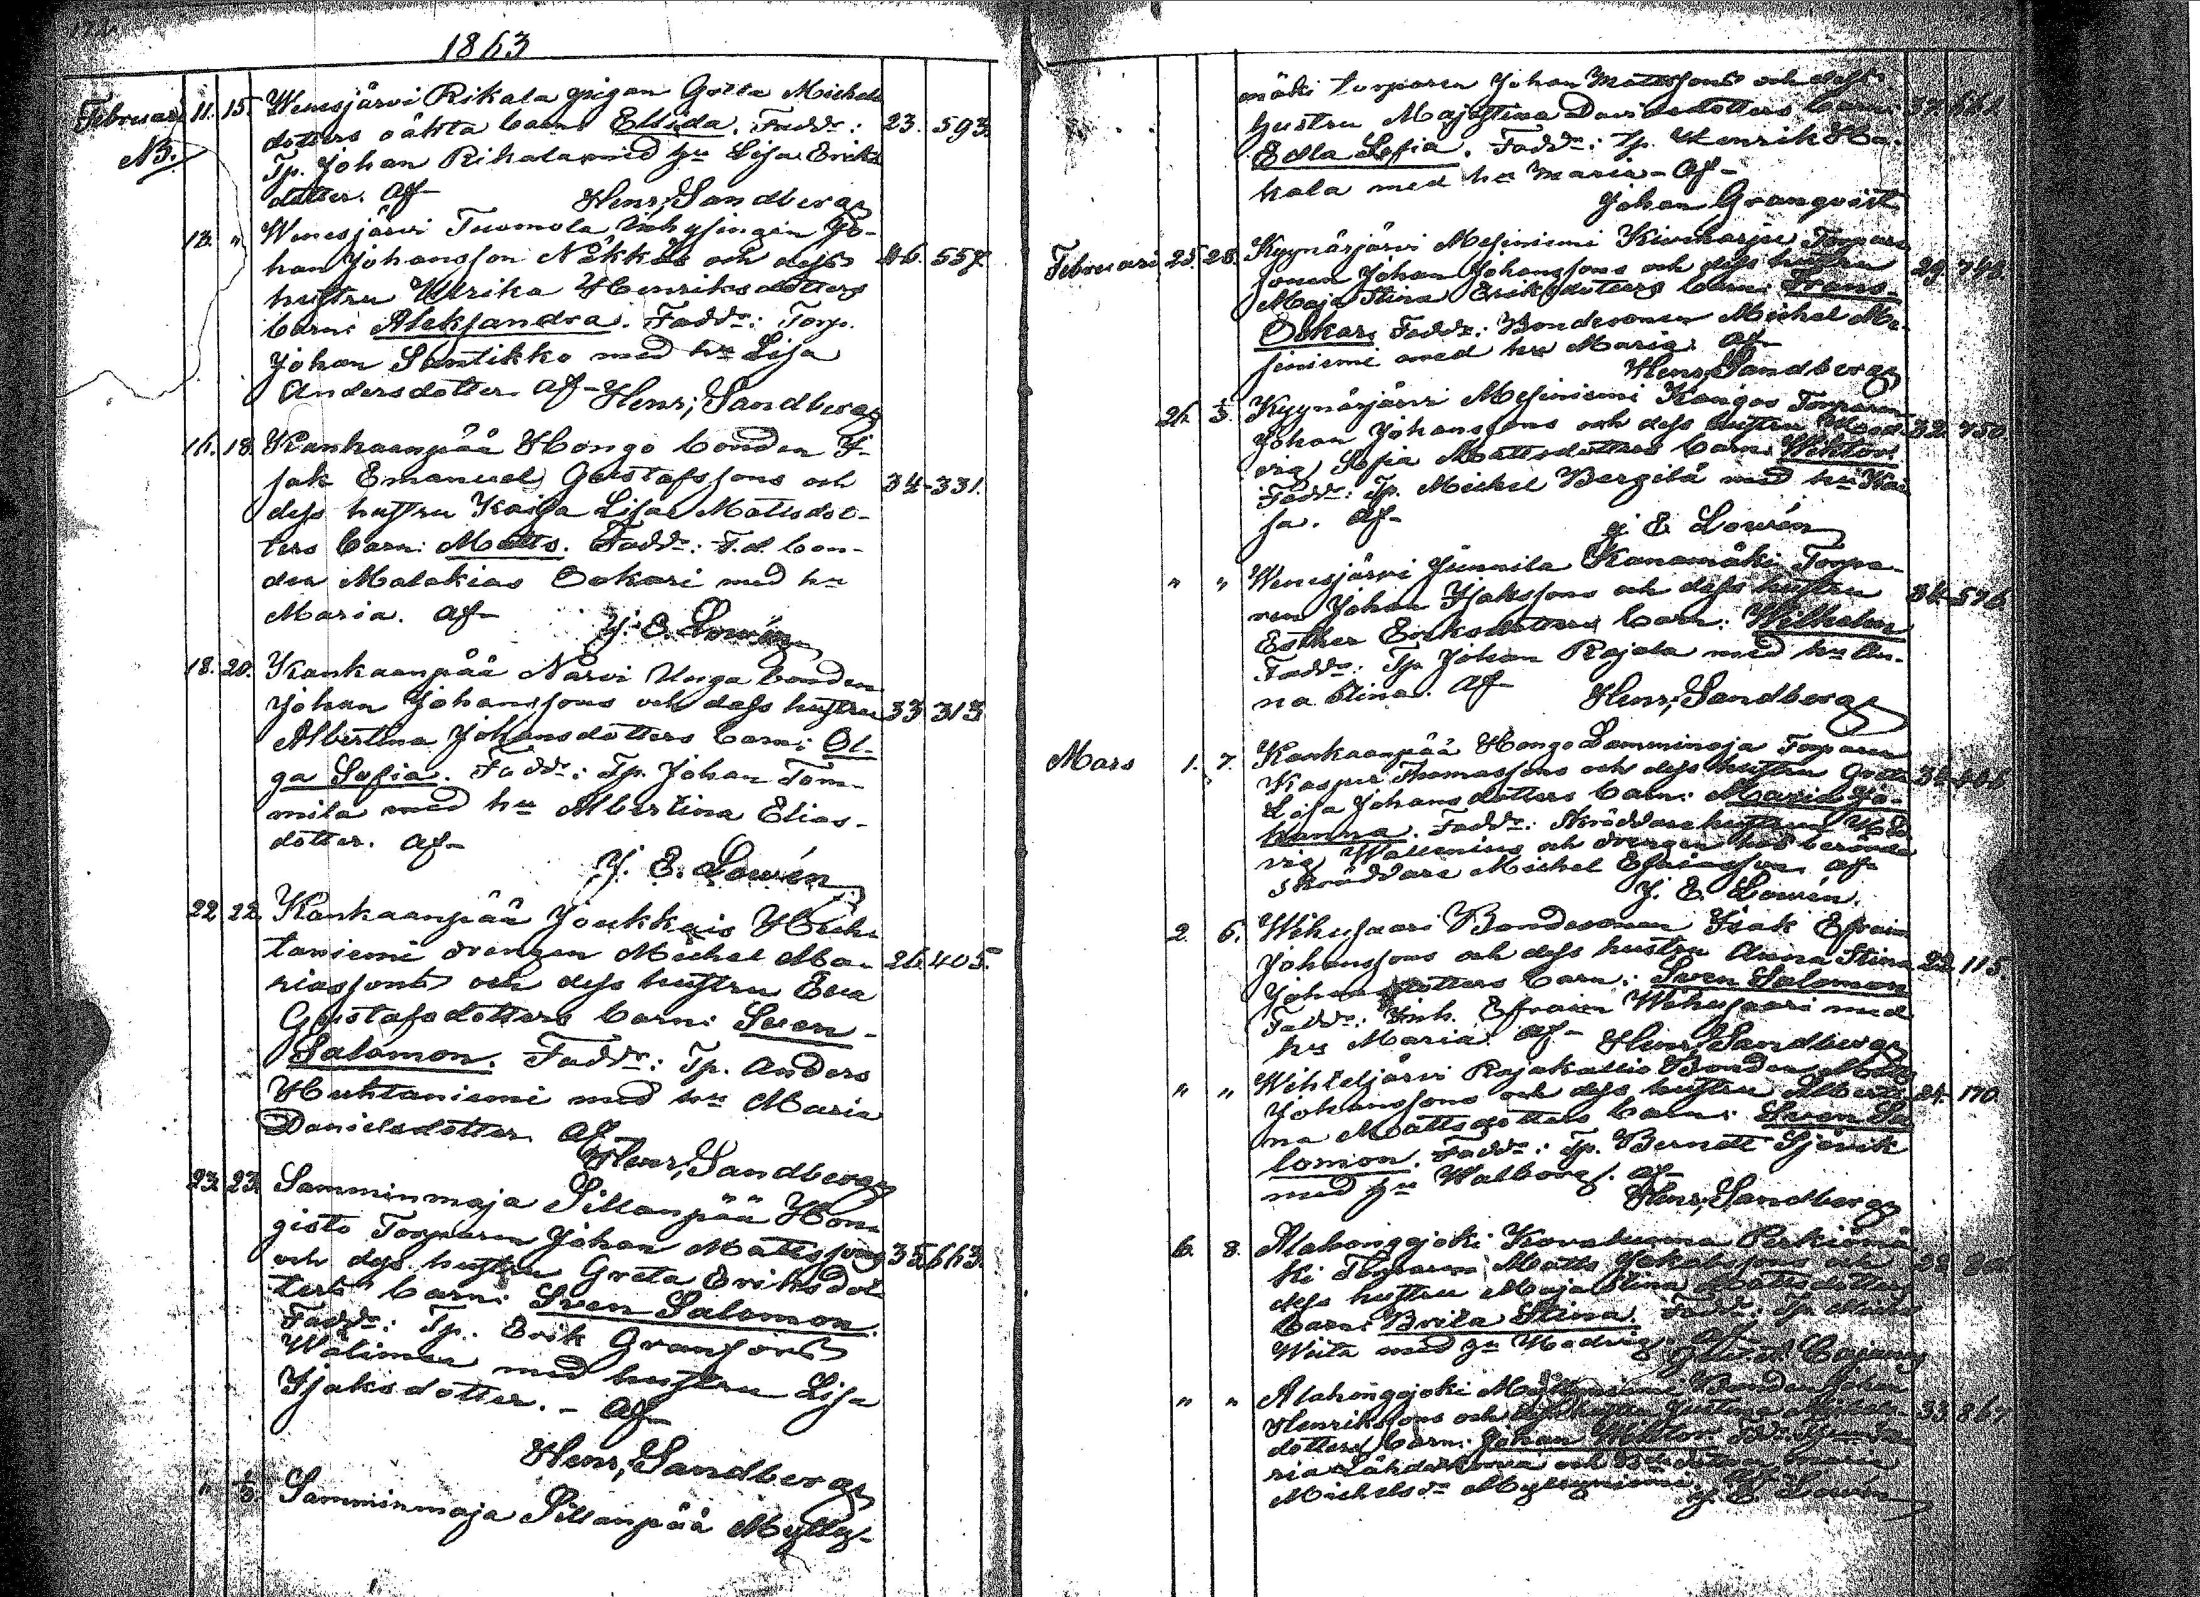 1863
Februari 11. 15. Wenesjärvi Rikala pigan Greta Michels
dotters oäkta barn: Elsida. Fadd:r: 23. 593.
NB. Tp. Johan Rikala med hu Lisa Eriks
dotter. Af-
Henr; Sandberg
13. " Wenesjärvi Tuomola Inhysingen Jo-
han Johansson Näkkäs och dess 46. 557.
hustru Ulrika Henriksdotters
barn: Aleksandra. Fadd:r: Torp.
Johan Santikko med hu Lisa
Andersdotter. Af- Henr; Sandberg
16. 18. Kankaanpää Hongo bonden I-
sak Emanuel Gustafssons och 34. 331.
dess hustru Kaisa Lisa Mattsdot-
ters barn: Matts. Fadd:r: F.d. bon-
den Malakias Oskari med hu
Maria. Af-
J. E. Lowén
18. 20. Kankaanpää Närvi Unga bonden
Johan Johanssons och dess hustru 33 313
Albertina Johansdotters barn: Ol-
ga Sofia. Fadd:r: Tp. Johan Tom-
mila med hu Albertina Elias-
dotter. Af-
J. E. Lowén
22. 22. Kankaanpää Joukkais Huh-
taniemi drengen Michel Ma- 26. 405.
riassons och dess hustru Eva
Gustafsdotters barn: Sven
Salomon. Fadd:r: Tp. Anders
Huhtaniemi med hu Maria
Danielsdotter. Af
Henr; Sandberg
23. 23. Samminmaja Sillanpää Hon-
gisto Torparen Johan Mattssons 35. 663.
och dess hustru Greta Eriksdot-
ters barn: Sven Salomon.
Fadd:r: Tp. Erik Granfors
Wälimaa med hustru Lisa
Isaksdotter. - Af-
Henr; Sandberg
" 1/3. Samminmaja Sillanpää Mylly-
mäki torparen Johan Mattssons och dess
hustru Maja Stina Davidsdotters barn: 37.
Edla Sofia. Fadd:r: Tp. Henrik Ha-
kala med hu Maria - Af-
Johan Granqvist
Februari 25. 28. Kyynärjärvi Mesiniemi Kiviharju Torpare
sonen Johan Johanssons och dess hustru 29. 746.
Maja Stina Eriksdotters barn: Frans
Oskar. Fadd:r: Bondesonen Michel Me-
siniemi med hu Maria. Af-
Henr; Sandberg
26. 1/3. Kyynärjärvi Mesiniemi Kangas Torparen
Johan Johanssons och dess hustru Hed- 32. 750.
vig Sofia Mattsdotters barn: Wiktor.
Fadd:r: Tp. Michel Bergilä med hu Kai
sa. Af-
J. E. Lowén
" " Wenesjärvi Junnila Kanamäki Torpa-
ren Johan Isakssons och dess hustru 34. 576
Esther Eriksdotters barn: Wilhelm
Fadd:r: Tp. Johan Rajala med hu An-
na Stina. Af-
Henr; Sandberg
Mars 1. 7. Kankaanpää Hongo Lamminoja Torparen
Kasper Thomassons och dess hustru Greta 34. 406
Lisa Johansdotters barn: Maria Jo-
hanna. Fadd:r: Skräddarehustrun Hed
vig Wallenius och drengen hos berörde
skräddare Michel Esaiasson. Af-
J. E. Lowén.
2. 6. Wihusaari Bondesonen Isak Efraim
Johanssons och dess hustru Anna Stina 22. 115.
Johansdotters barn: Sven Salomon
Fadd:r: Inh. Efraim Wihusaari med
hu Maria. Af- Henr; Sandberg
" " Wihteljärvi Rajakallio Bonden Matts
Johanssons och dess hustru Alberti- 24. 170.
na Mattsdotters barn: Sven Sa
lomon. Fadd:r: Tp. Berndt Sjövik
med hu Walborg. Af-
Henr; Sandberg
6. 8. Alahonggojoki Kovakumma Perkiömä
ki Torparen Matts Jakobssons och 28
dess hustru Maja Stina Mattsdotters
barn: Brita Stina. Fadd:r: Tp. Matts
Wiita med hu Hedvig. Af-
Cajanus
" " Alahonggojoki Myllyniemi Bonden Johan
Henrikssons och dess hustru Justina Michels- 33. 867
dotters barn: Johan Wiktor.
ria Lähdeskorva och Maria
Michelsdr Myllyniemi. J. E. Lowén